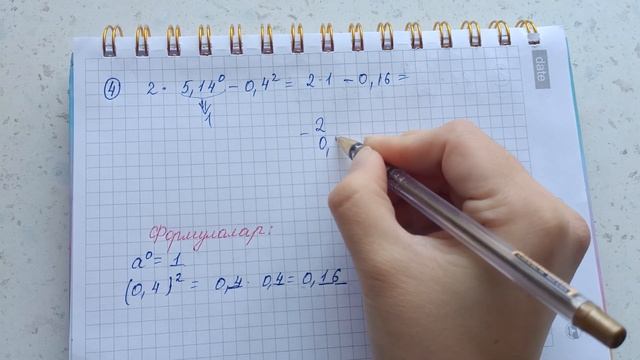 ④ 2 · 5,14⁰ - 0,4² = 2·1 - 0,16 =
⇓
1
- 2
0,
Формулалар:
a⁰ = 1
(0,4)² = 0,4 · 0,4 = 0,16
date